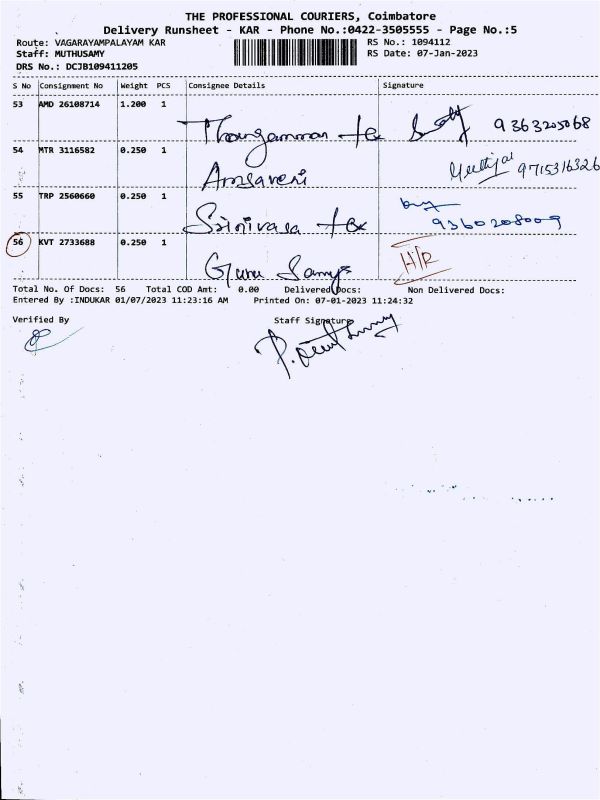 THE PROFESSIONAL COURIERS, Coimbatore
Delivery Runsheet - KAR - Phone No.:0422-3505555 - Page No.:5
Route: VAGARAYAMPALAYAM KAR RS No.: 1094112
Staff: MUTHUSAMY RS Date: 07-Jan-2023
DRS No.: DCJB109411205
S No Consignment No Weight PCS Consignee Details Signature
53 AMD 26108714 1.200 1
Thangamman tex 9363205068
54 MTR 3116582 0.250 1
Amsaveni 9715316326
55 TRP 2560660 0.250 1
Srinivasa tex 9360208009
56 KVT 2733688 0.250 1
Guru Samy H/R
Total No. Of Docs: 56 Total COD Amt: 0.00 Delivered Docs: Non Delivered Docs:
Entered By :INDUKAR 01/07/2023 11:23:16 AM Printed On: 07-01-2023 11:24:32
Verified By Staff Signature